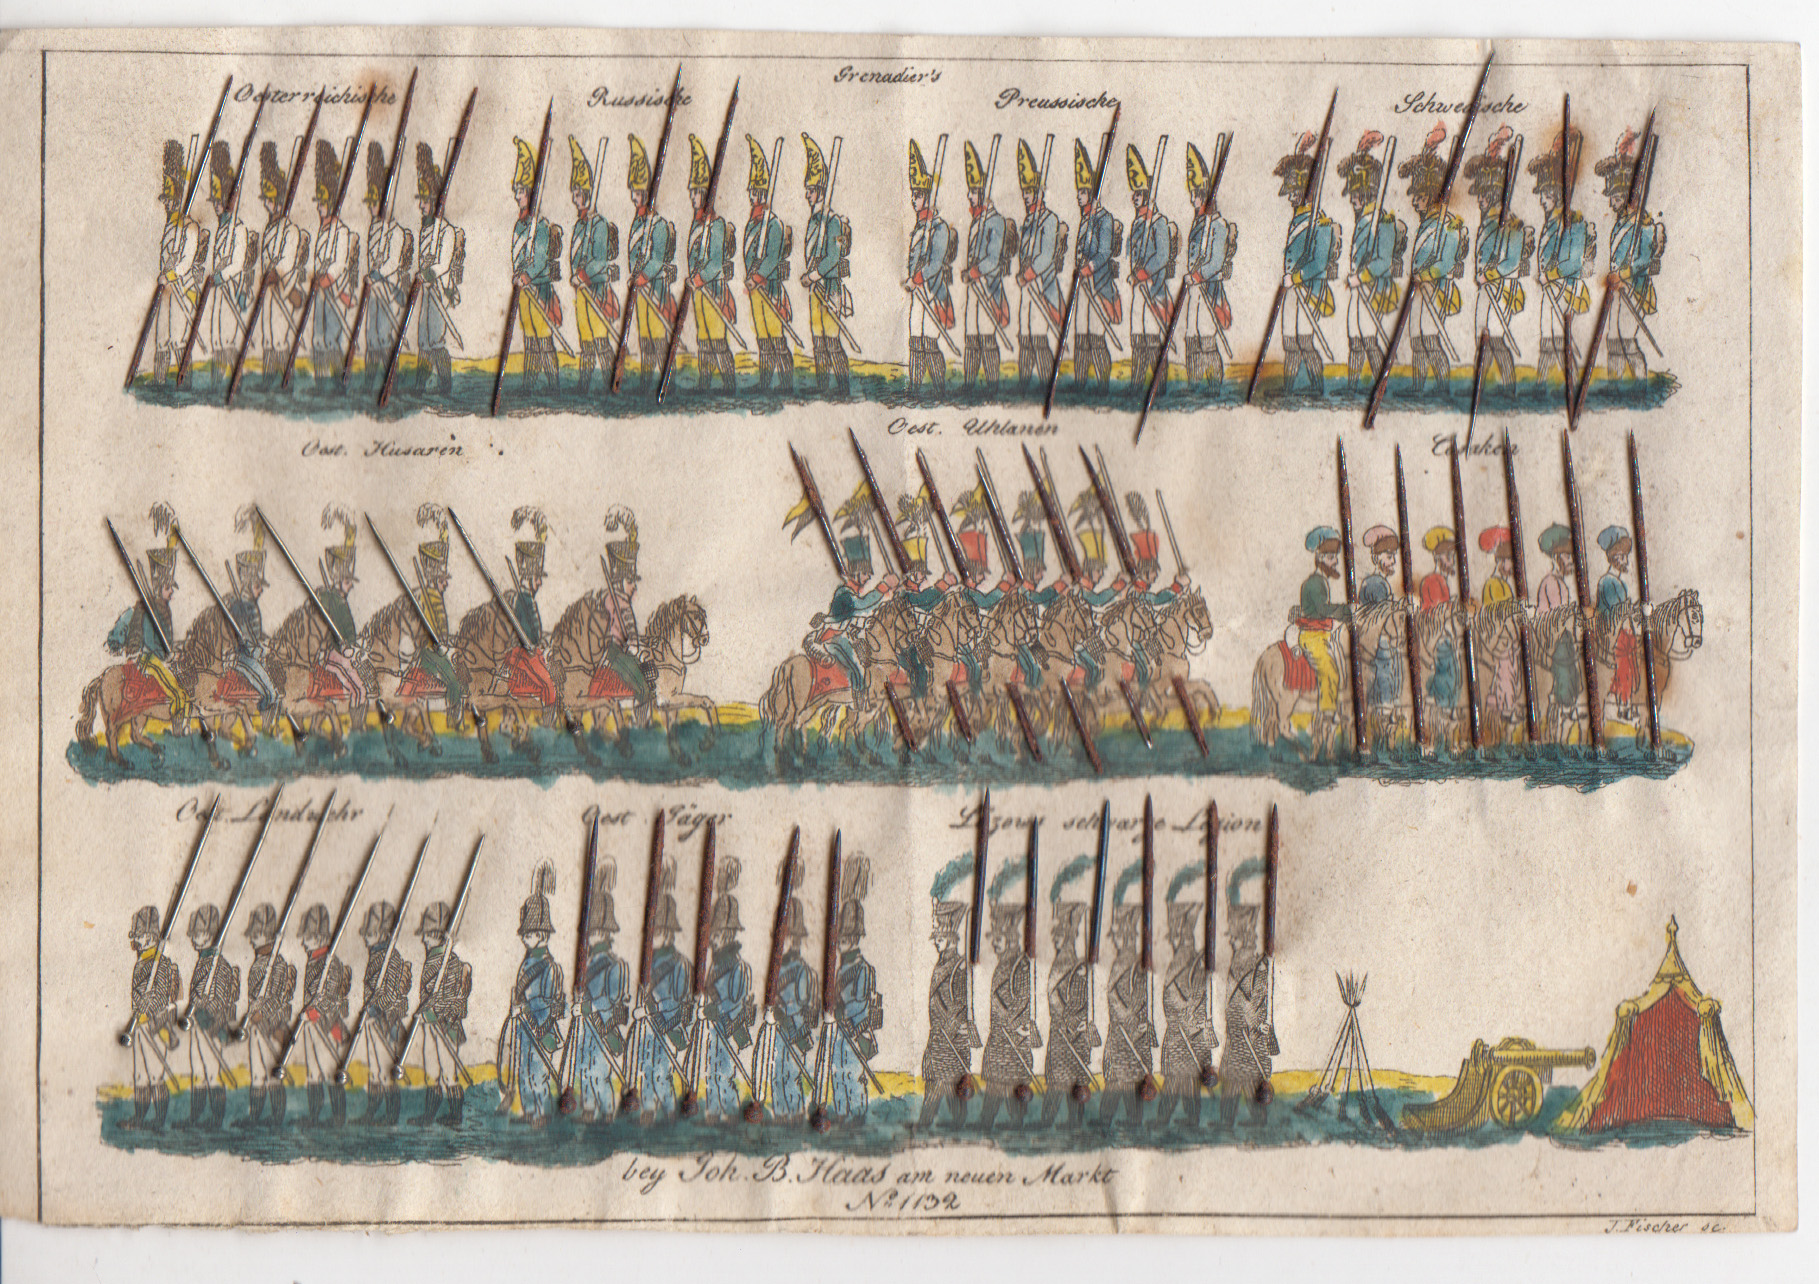 Grenadier's
Oesterreichische Russische Preussische Schwedische
Oest. Husaren Oest. Uhlanen Cosaken
Oest. Landwehr Oest. Jäger Lüzows schwarze Legion
bey Joh. B. Haas am neuen Markt
No 1132
J. Fischer sc.